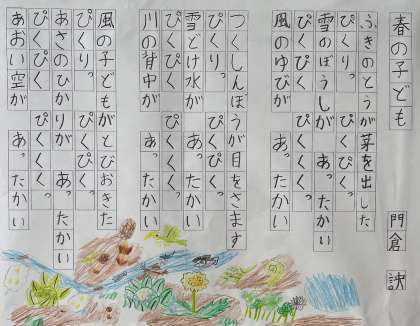 春の子ども
門倉 詇
ふきのとうが芽を出した
ぴくりっ ぴくぴくっ
雪のぼうしが あったかい
ぴくぴく ぴくくくっ
風のゆびが あったかい
つくしんぼうが目をさます
ぴくりっ ぴくぴくっ
雪どけ水が あったかい
ぴくぴく ぴくくくっ
川の背中が あったかい
風の子どもがとびおきた
ぴくりっ ぴくぴくっ
あさのひかりが あったかい
ぴくぴく ぴくくくっ
あおい空が あったかい